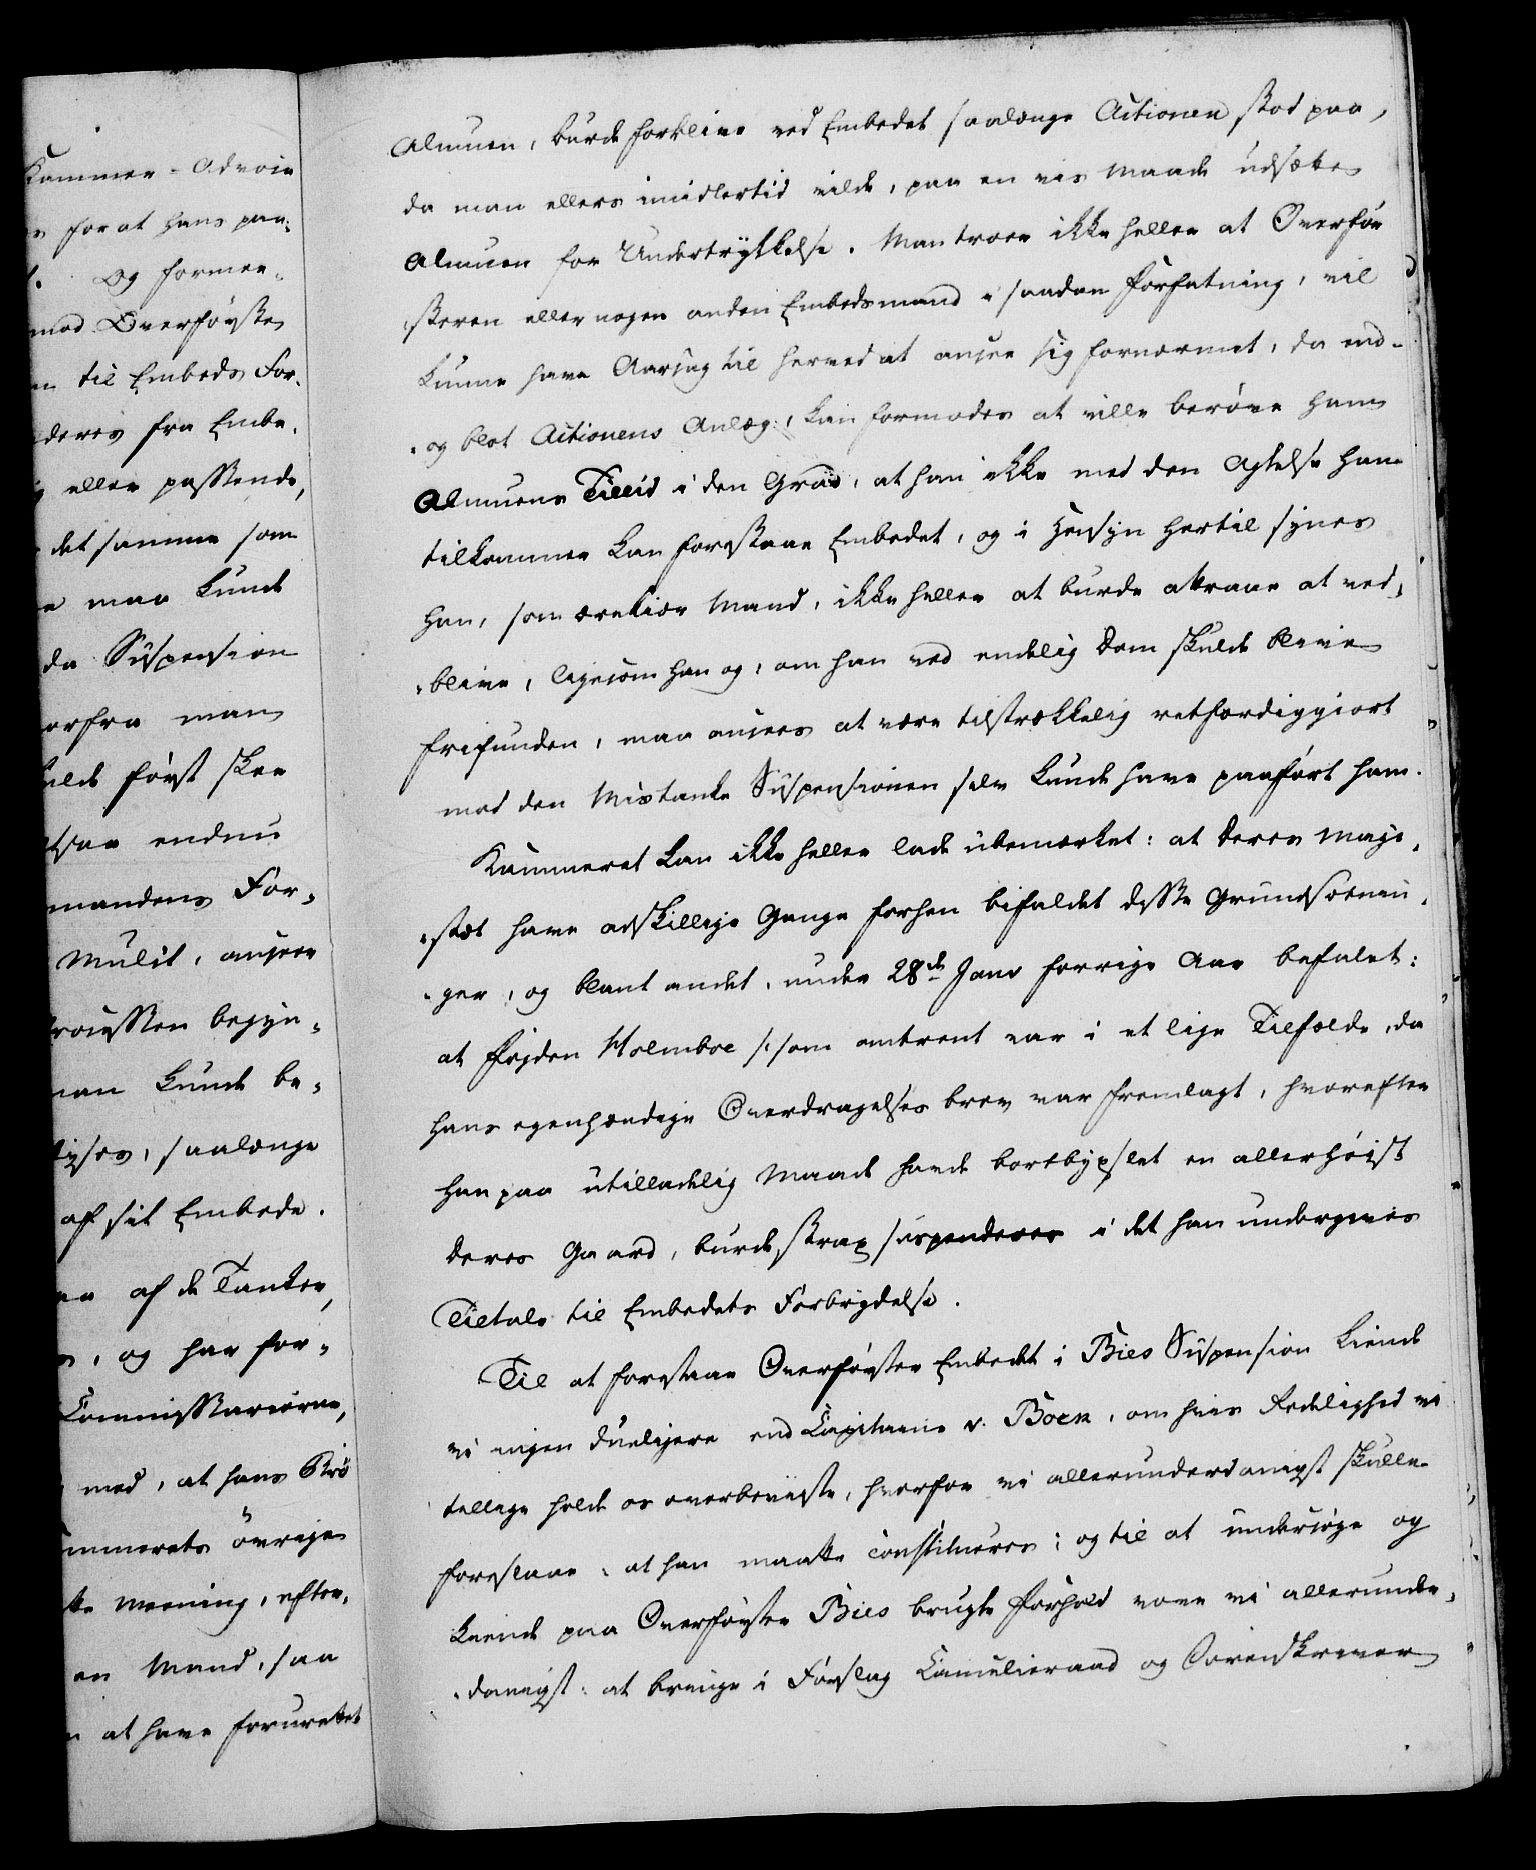 Kammer-Advoca
for at hans paa-
Og formee-
mod Overførster
til Embeds For-
deres fra Embe-
eller passende,
det samme som
maa kunde
da Suspension
orfra man
ulde først skee
endnu
mandens For-
Mulct, ansees
begyn-
man kunde be-
saalænge
af sit Embede.
af de Tanker,
, og har for-
Commissarierne,
med, at hans
ammerets øvrige
Meening, efter-
en Mand, saa
at have forurettet
Almuen, burde forblive ved Embedet saalænge Actionen stod paa,
da man ellers imidlertid vilde, paa en vis Maade udsætte
Almuen for Undertrykkelse. Man troer ikke heller at Overfør
steren eller nogen anden Embedsmand i saadan Forfatning, vil
kunne have Aarsag til herved at ansee sig fornærmet, da end-
og blot Actionens Anlæg, kan formodes at ville berøve ham
Almuens Tillid i den Grad, at han ikke med den Agtelse ham
tilkommer kan forestaae Embedet, og i Hensyn hertil synes
han, som ærekiær Mand, ikke heller at burde attraae at ved-
blive, ligesom han og, om han ved endelig Dom skulde blive
frifunden, maa ansees at være tilstrækkelig retfærdiggiort
mod den Mistanke Suspensionen selv kunde have paaført ham.
Kammeret kan ikke heller lade ubemærket: at Deres Maje-
stæt have adskillige Gange forhen bifaldet disse Grundsætnin-
ger, og blant andet, under 28de Janv forrige Aar befalet:
at Fogden Holmboe /: som omtrent var i et lige Tilfælde, da
hans egenhændige Overdragelses brev var fremlagt, hvorefter
han paa utilladelig Maade havde bortbyxlet en allerhøist
deres Gaard, burde strax suspenderes i det han undergives
Tiltale til Embedets Forbrydelse.
Til at forestaae Overførster Embedet i Bies Suspension kiende
vi ingen dueligere end Capitaine v. Boek, om hvis Redelighed vi
tillige holde os overbeviiste, hvorfor vi allerunderdanigst skulle
foreslaae, at han maatte constitueres; og til at undersøge og
kiende paa Overførster Bies brugte Forhold vove vi allerunder-
danigst: at bringe i Forslag Cancelieraad og Sorenskriver